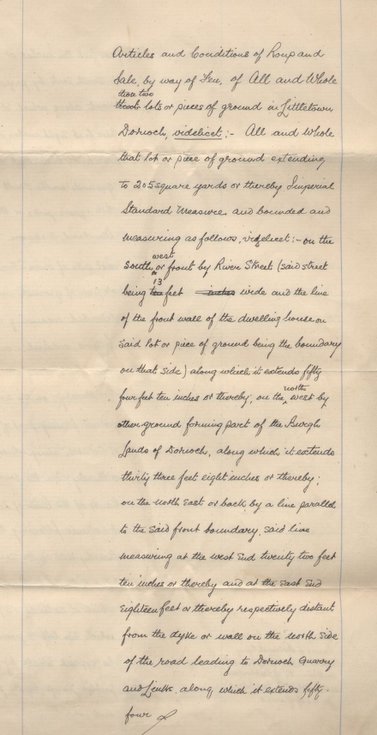 Articles and Conditions of Roup and
Sale, by way of Feu, of All and Whole
those two
lots or pieces of ground in Littletown
Dornoch, videlicet:- All and Whole
that lot or piece of ground extending
to 205 square yards or thereby Imperial
Standard Measure and bounded and
measuring as follows, videlicet:- on the
west
South or front by River Street (said street
13
being feet inches wide and the line
of the front wall of the dwelling house on
said lot or piece of ground being the boundary
on that side) along which it extends fifty
four feet ten inches or thereby; on the north west by
other ground forming part of the Burgh
Lands of Dornoch, along which it extends
thirty three feet eight inches or thereby;
on the North East or back by a line parallel
to the said front boundary, said line
measuring at the west End twenty two feet
ten inches or thereby and at the East End
Eighteen feet or thereby respectively distant
from the dyke or wall on the north side
of the road leading to Dornoch Quarry
and Links, along which it extends fifty
four